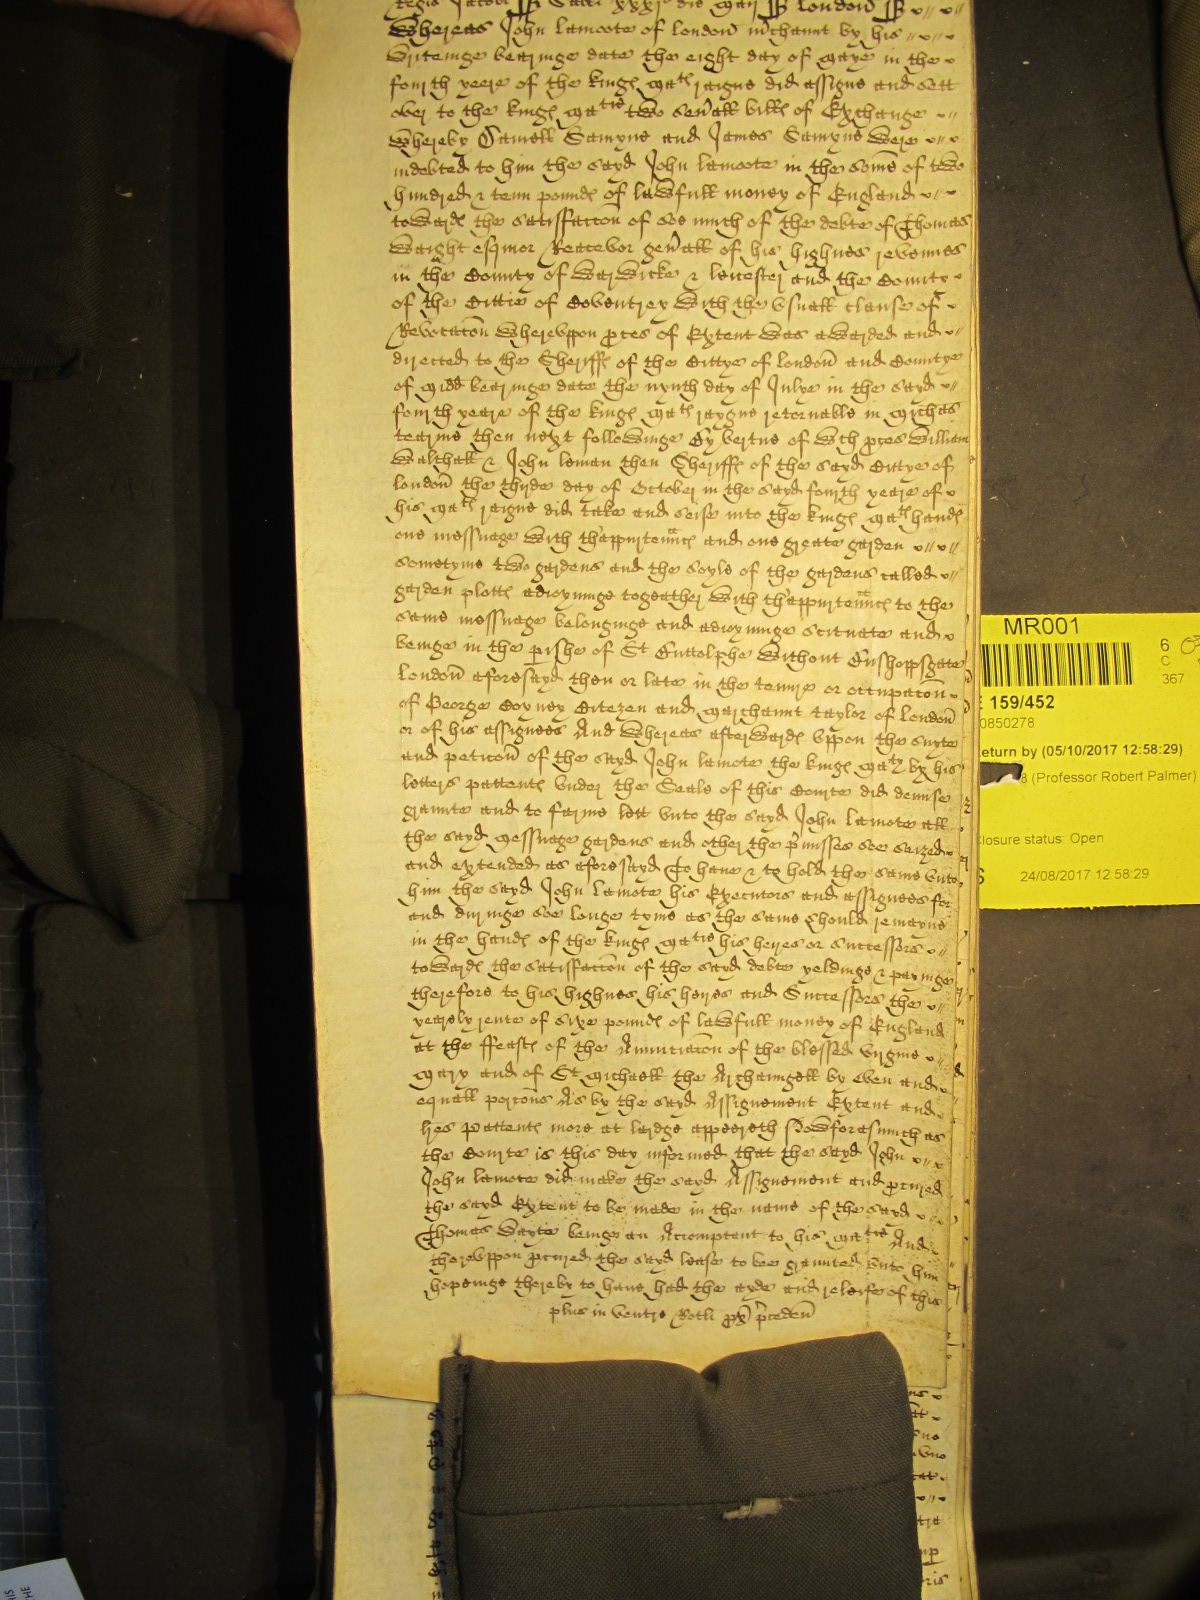 Whereas John Lamoote of London mchannt by his
writeinge bearinge date the eight day of Maye in the
fourth yeere of the kings Matˢ raigne did assigne and sett
over to the kings Matie two sevall bills of Exchange
whereby Samyne and James Samyne were
indebted to him the sayd John Lamoote in the some of two
hundred & tenn pounds of lawfull money of England
towards the satisfaccon of soe much of the debte of Thomas
Waight esqmor Receavor genall of his highnes revenues
in the County of Warwicke & Leicester and the County
of the Cittie of Coventrey with the vsuall clause of
Revocacon whereuppon pces of Extent was awarded and
directed to the Sheriffs of the Cittye of London and Countye
of Midd bearinge date the nynth day of Julye in the sayd
fourth yeare of the kings Matˢ raygne retornable in Michas
tearme then next followinge By vertue of wch pces William
Walthall & John Leman then Sheriffs of the sayd Cittye of
London the thyrde day of October in the sayd fourth yeare of
his Matˢ raigne did take and seise into the kings Matˢ hands
one messuage with thappurtennce and one greate garden
sometyme two gardens and the soyle of the gardens called
garden plotts adioyninge togeather with thappurtennce to the
same messuage belonginge and adioyninge scituate and
beinge in the pishe of St Buttolphe without Bushoppsgate
London aforesayd then or late in the tenure or occupacon
of George Coyney Citezen and Marchannt taylor of London
or of his assignees And whereas afterwards vppon the suyte
and peticon of the sayd John Lamote the kings Maty by his
letters pattents vnder the Seale of this Courte did demise
graunte and to farme lett vnto the sayd John Lamote all
the sayd Messuage gardens and other the pmisses soe seized
and extended as aforesayd To have & to hold the same vnto
him the sayd John Lamote his Executors and assignees for
and duringe soe longe tyme as the same should remayne
in the hands of the kings Matie his heyres or successors
towards the satisfaccon of the sayd debte yeldinge & payinge
therefore to his highnes his heyres and Successors the
yearely rente of sixe pounds of lawfull money of England
at the ffeasts of the Annuciacon of the blessed virgine
Mary and of St Michaell the Archanngell by even and
equall porcons As by the sayd Assignement Extent and
lres pattents more at lardge appeereth Nowforasmuch as
the Courte is this day informed that the sayd John
John Lamote did make the sayd Assignement and pcured
the sayd Extent to be made in the name of the sayd
Thomas Wayte beinge an Accomptant to his Matie And
thereuppon pcured the sayd lease to bee graunted vnto him
hopeinge thereby to have had the ayde and releife of this
plus in ventre Rotli px pceden
MR001
6
C
367
E 159/452
0850278
eturn by (05/10/2017 12:58:29)
8 (Professor Robert Palmer)
losure status: Open
S 24/08/2017 12:58:29